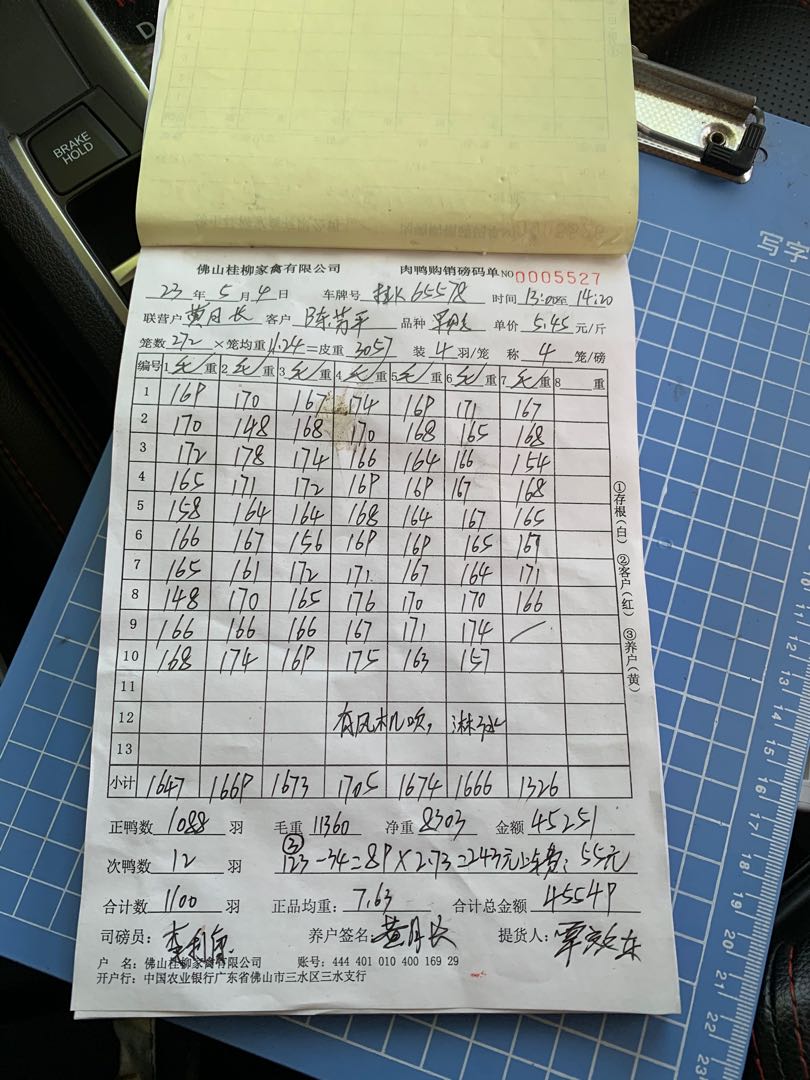 BRAKE
HOLD
写字
佛山桂柳家禽有限公司 肉鸭购销磅码单 NO 0005527
23 年 5 月 4 日 车牌号 桂K 65578 时间 13:00至 14:20
联营户 黄月长 客户 陈芳平 品种 单价 5.45 元/斤
笼数 272 ×笼均重 11.24 =皮重 3057 装 4 羽/笼 称 4 笼/磅
编号 1 毛/重 2 毛/重 3 毛/重 4 毛/重 5 毛/重 6 毛/重 7 毛/重 8 重
1 169 170 167 174 169 171 167
2 170 148 168 170 168 165 168
3 172 178 174 166 164 166 154
4 165 171 172 169 169 167 168
5 158 164 164 168 164 167 165
6 166 167 156 169 169 165 167
7 165 161 172 171 167 164 171
8 148 170 165 176 170 170 166
9 166 166 166 167 171 174 /
10 168 174 169 175 163 157
11
12 有风机吹，淋水
13
小计 1647 1669 1673 1705 1674 1666 1326
①存根(白) ②客户(红) ③养户(黄)
正鸭数 1088 羽 毛重 11360 净重 8303 金额 45251
次鸭数 12 羽 ③ 123-34=89×2.73=243元 55元
合计数 1100 羽 正品均重: 7.63 合计总金额 45549
司磅员: 养户签名: 黄月长 提货人:
户 名: 佛山桂柳家禽有限公司 账号: 444 401 010 400 169 29
开户行: 中国农业银行广东省佛山市三水区三水支行
10
11
12
13
14
15
16
17
18
19
20
21
22
23